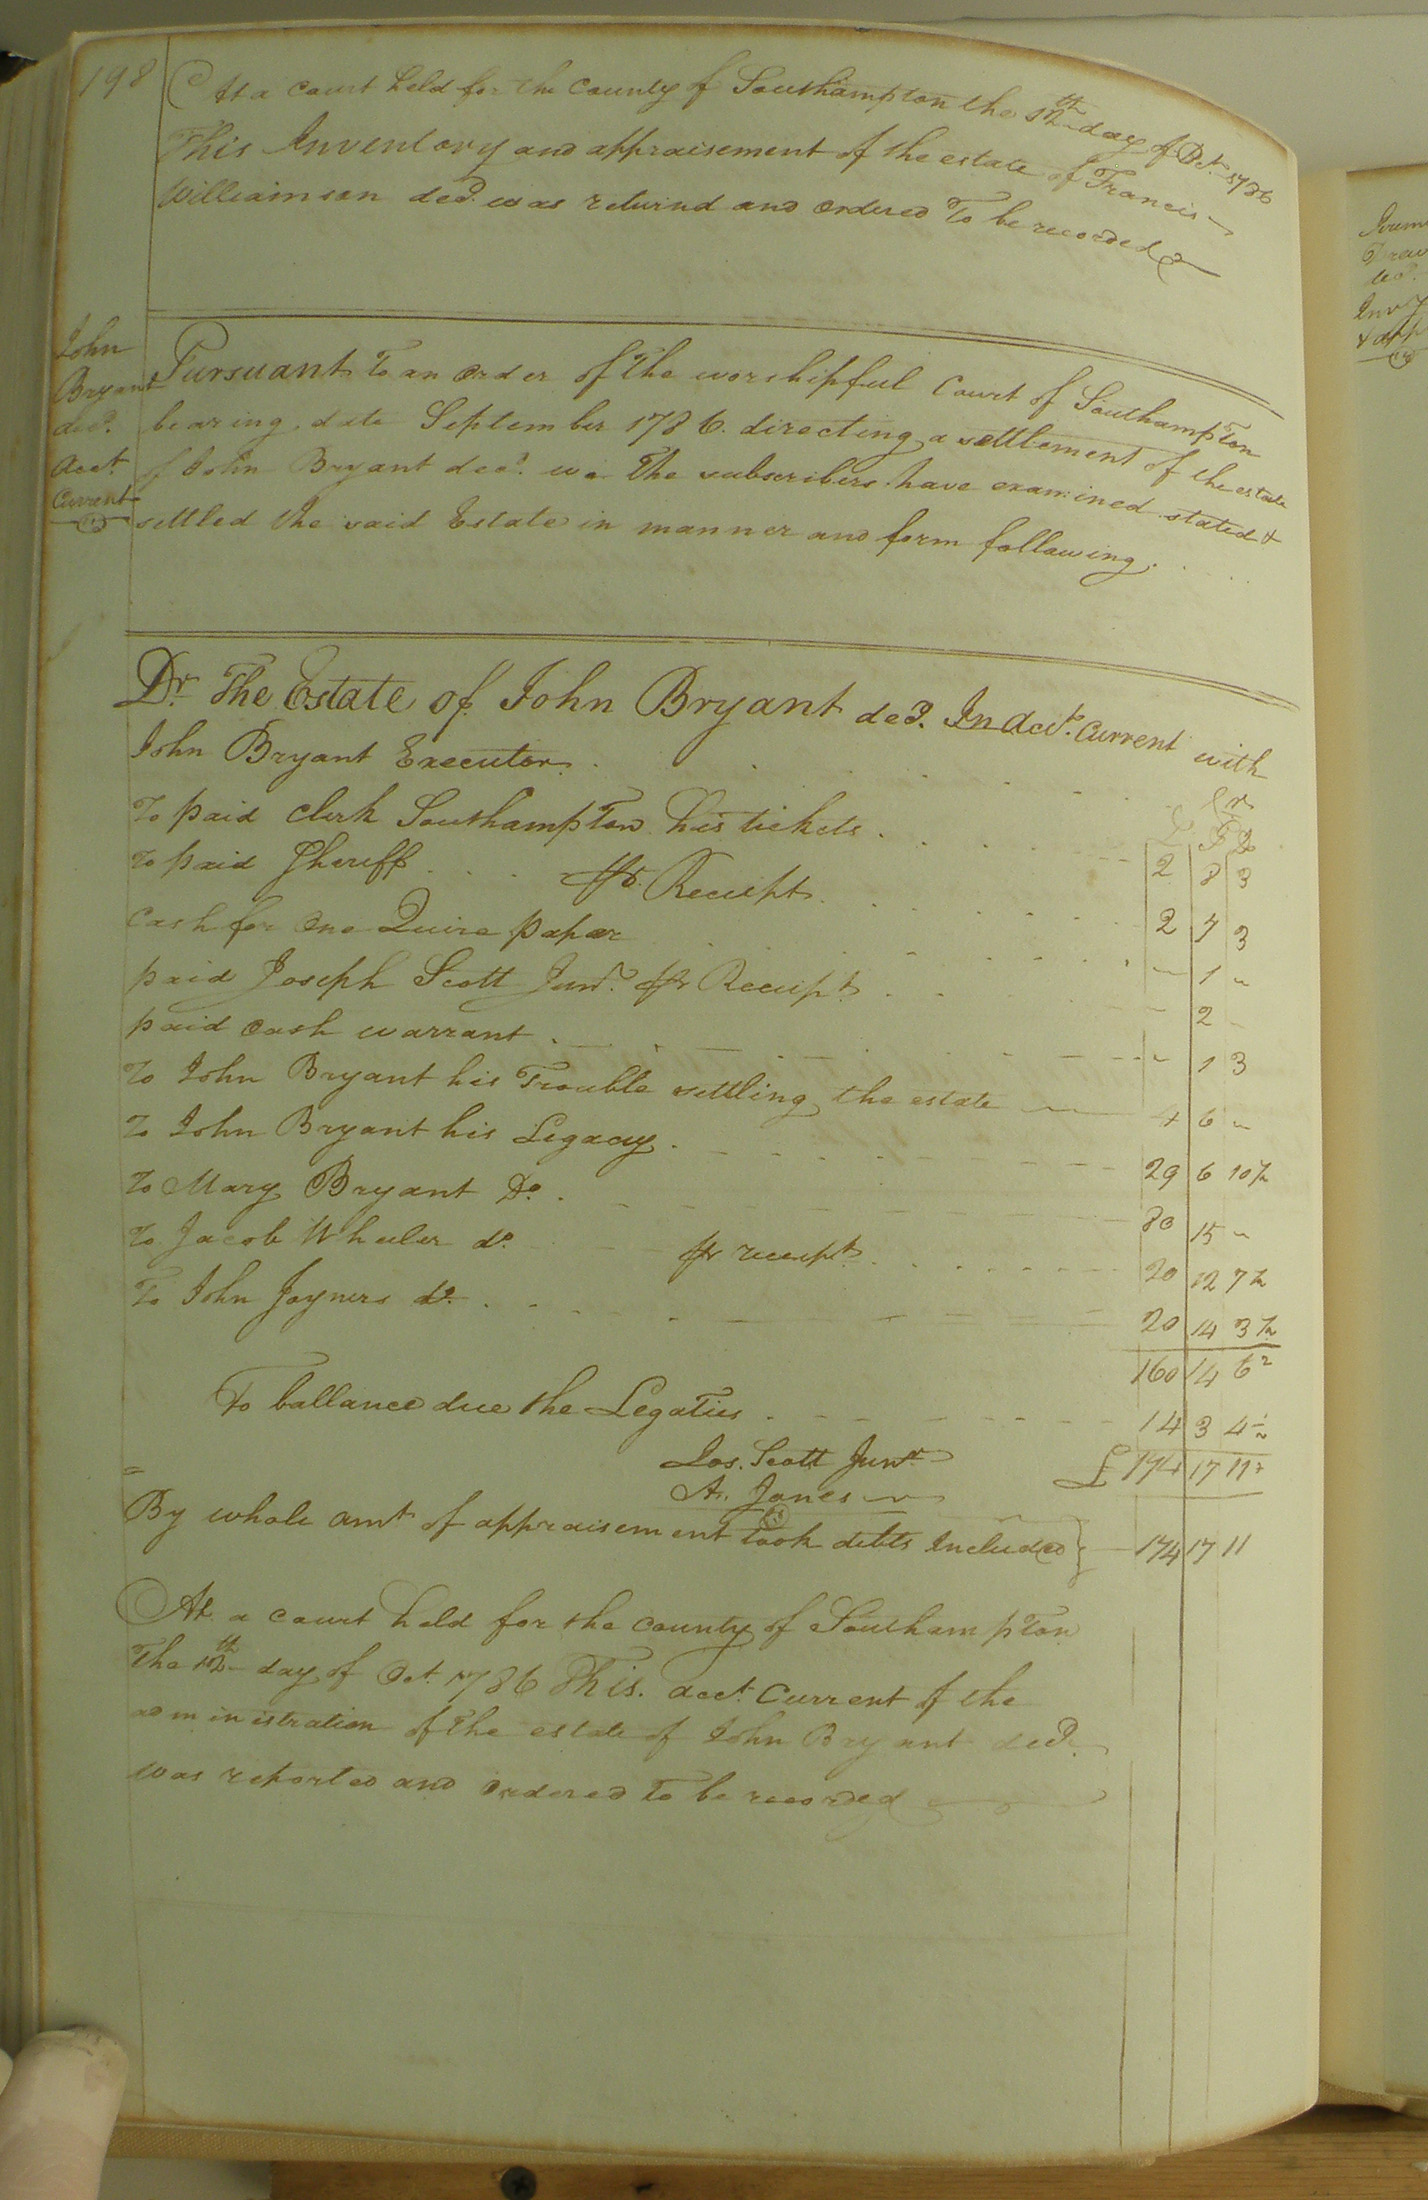 198
At a Court held for the County of Southampton the 12th day of Oct. 1786
This Inventory and appraisement of the estate of Francis
Williamson decd. was returnd and ordered To be recorded
John
Bryant
decd.
Acct.
Current
Pursuant To an order of the worshipful Court of Southampton
bearing date September 1786. directing a settlement of the estate
of John Bryant decd. we the subscribers have examined stated &
settled the said Estate in manner and form following.
Dr. The Estate of John Bryant decd. In Acct. Current with
John Bryant Executor
Cr
£ S D
To paid Clerk Southampton his tickets 2 8 3
To paid Sheriff pr. Receipt 2 7 3
Cash for One Quire paper ~ 1 ~
paid Joseph Scott Junr. pr Receipt 2 ~
paid cash warrant ~ 1 3
To John Bryant his Trouble settling the estate 4 6 ~
To John Bryant his Legacy 29 6 10½
To Mary Bryant Do. 80 15 ~
To Jacob Wheeler do. pr receipt 20 12 7½
To John Joyners do. 20 14 3½
160 14 6½
To ballance due the Legatees 14 3 4½
Jos. Scott Junr.
£ 174 17 11
A. Jones
By whole amt of appraisement Book debts Included } 174 17 11
At a court held for the County of Southampton
The 12th day of Oct. 1786 This. acct. Current of the
administration of the estate of John Bryant decd.
was reported and ordered to be recorded